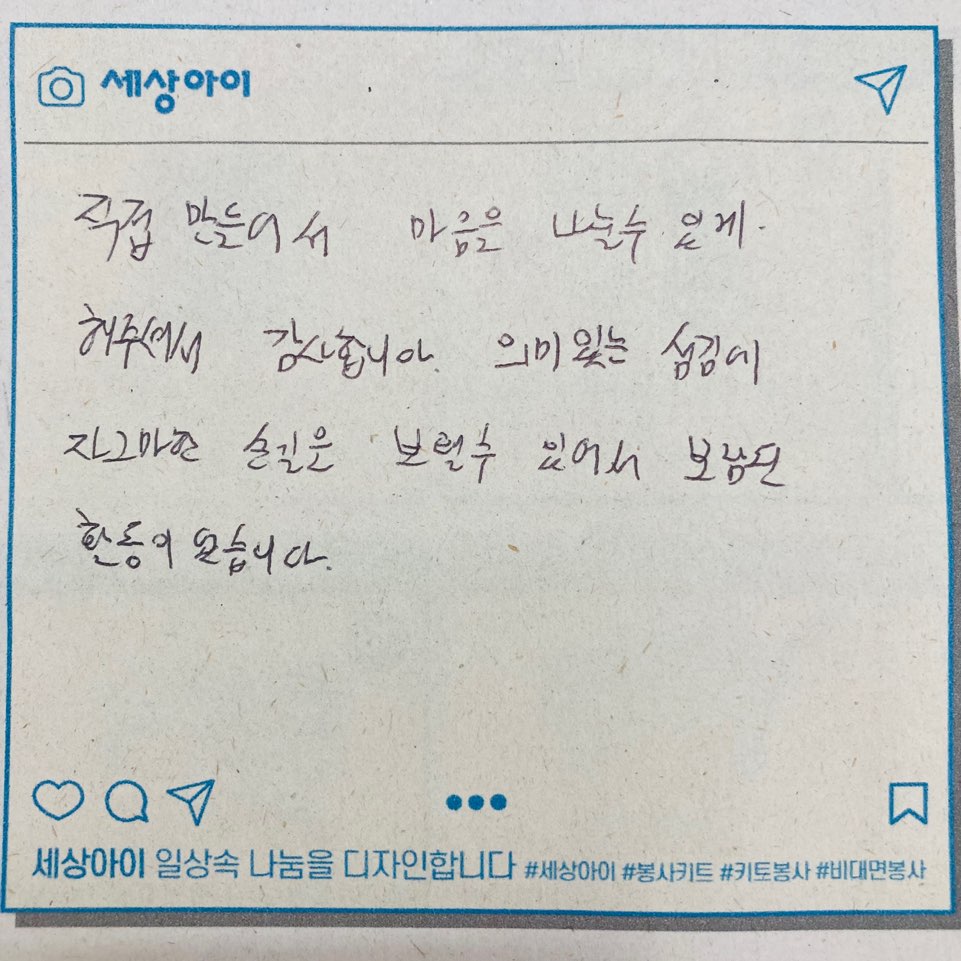 세상아이
직접 만들어서 마음을 나눌수 있게
해주셔서 감사합니다. 의미있는 섬김에
자그마한 손길은 보탤수 있어서 보람된
활동이 았습니다.
세상아이 일상속 나눔을 디자인합니다 #세상아이 #봉사키트 #키토봉사 #비대면봉사